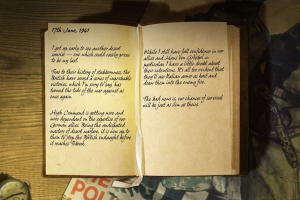 17th June, 1941
I got up early to see another desert
sunrise — one which could easily prove
to be my last.
True to their history of stubbornness, the
British have scored a series of improbable
victories, which I'm sorry to say has
turned the tide of the war against us
once again.
High Command is getting more and
more dependant on the expertise of our
German allies. Being the undisputed
masters of desert warfare, it is now up to
them to stop the British onslaught before
it reaches Tobruk.
While I still have full confidence in our
allies and Hans von
in
particular, I have a little doubt about
their intentions. It's all too evident that
they'll use Italian arms as bait and
draw them into the enemy fire.
The bad news is, our chances of survival
will be just as slim as theirs.
POL